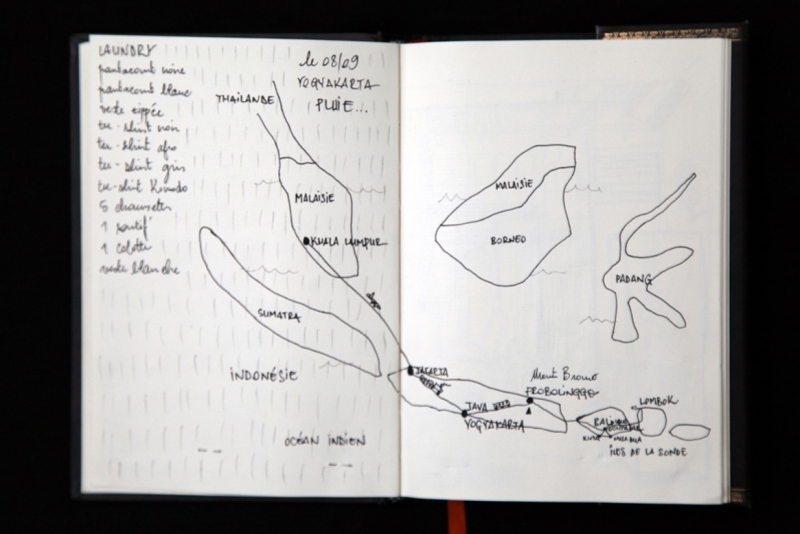 LAUNDRY
pantacourt noire
pantacourt blanc
veste zippée
tee-shirt noir
tee-shirt afro
tee-shirt gris
tee-shirt
5 chaussettes
1
1 culotte
veste blanche
le 08/09
YOGYAKARTA
PLUIE...
THAÏLANDE
MALAISIE
KUALA LUMPUR
SUMATRA
INDONÉSIE
OCÉAN INDIEN
MALAISIE
BORNEO
PADANG
JAKARTA
Mont Bromo
PROBOLINGGO
JAVA
YOGYAKARTA
LOMBOK
BALI
KUTA
ÎLES DE LA SONDE